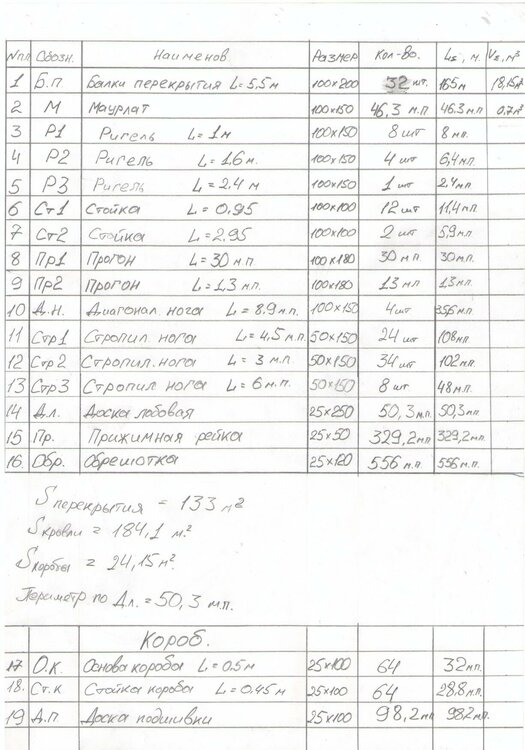 №п.п Обозн. Наименов Размер Кол-во. L₂, м. V₂, м³
1 Б.п Балки перекрытия L=5,5м 100х200 32 шт. 165м
2 М Маурлат 100х150 46,3 м.п 46.3 м.п 0.7м³
3 Р1 Ригель L=1м 100х150 8 шт 8 мп.
4 Р2 Ригель L=1,6 м. 100х150 4 шт 6,4мп.
5 Р3 Ригель L=2.4 м 100х150 1 шт 2,4мп.
6 Ст1 Стойка L=0,95 100х100 12 шт 11,4мп.
7 Ст2 Стойка L=2,95 100х100 2 шт 5,9мп.
8 Пр1 Прогон L=30 м.п 100х180 30 м.п 30мп.
9 Пр2 Прогон L=1,3 м.п. 100х180 13 мп 13мп.
10 Д.н. Диагонал нога L=8.9м.п. 100х150 4 шт 356мп.
11 Стр1 Стропил нога L=4,5м.п 50х150 24 шт 108мп
12 Стр2 Стропил. нога L=3 м.п 50х150 34 шт 102мп.
13 Стр3 Стропил нога L=6м.п. 50х150 8 шт 48мп.
14 Дл. Доска лобовая 25х250 50,3м.п. 50,3мп
15 Пр. Прижимная рейка 25х50 329,2мп 329,2мп.
16. Обр. Обрешотка 25х120 556 м.п. 556 м.п.
S перекрытия = 133 м²
S кровли = 184,1 м.²
S коробы = 24,15м².
Периметр по Дл. = 50,3 м.п.
Короб.
17 О.к. Основа короба L=0.5м 25х100 64 32мп.
18. Ст.к Стойка короба L=0.45м 25х100 64 28.8мп.
19 Д.п Доска подшивки 25х100 98,2мп 98.2мп.